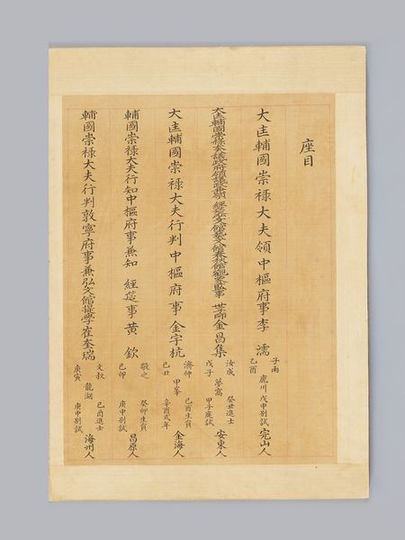 座目
大匡輔國崇祿大夫領中樞府事李濡 子雨 己酉 鹿川 戊申別試 完山人
大匡輔國崇祿大夫議政府領議政兼領 經筵弘文館藝文館春秋館觀象監事 世子師金昌集 汝成 戊子 夢窩 癸丑進士 甲子庭試 安東人
大匡輔國崇祿大夫行判中樞府事金宇杭 濟仲 己丑 甲峯 己酉生員 辛酉式年 金海人
輔國崇祿大夫行知中樞府事兼知 經筵事黃欽 敬之 己卯 癸卯生員 庚申別試 昌原人
輔國崇祿大夫行判敦寧府事兼弘文館提學崔奎瑞 文叔 庚寅 龍湖 己酉進士 庚申別試 海州人